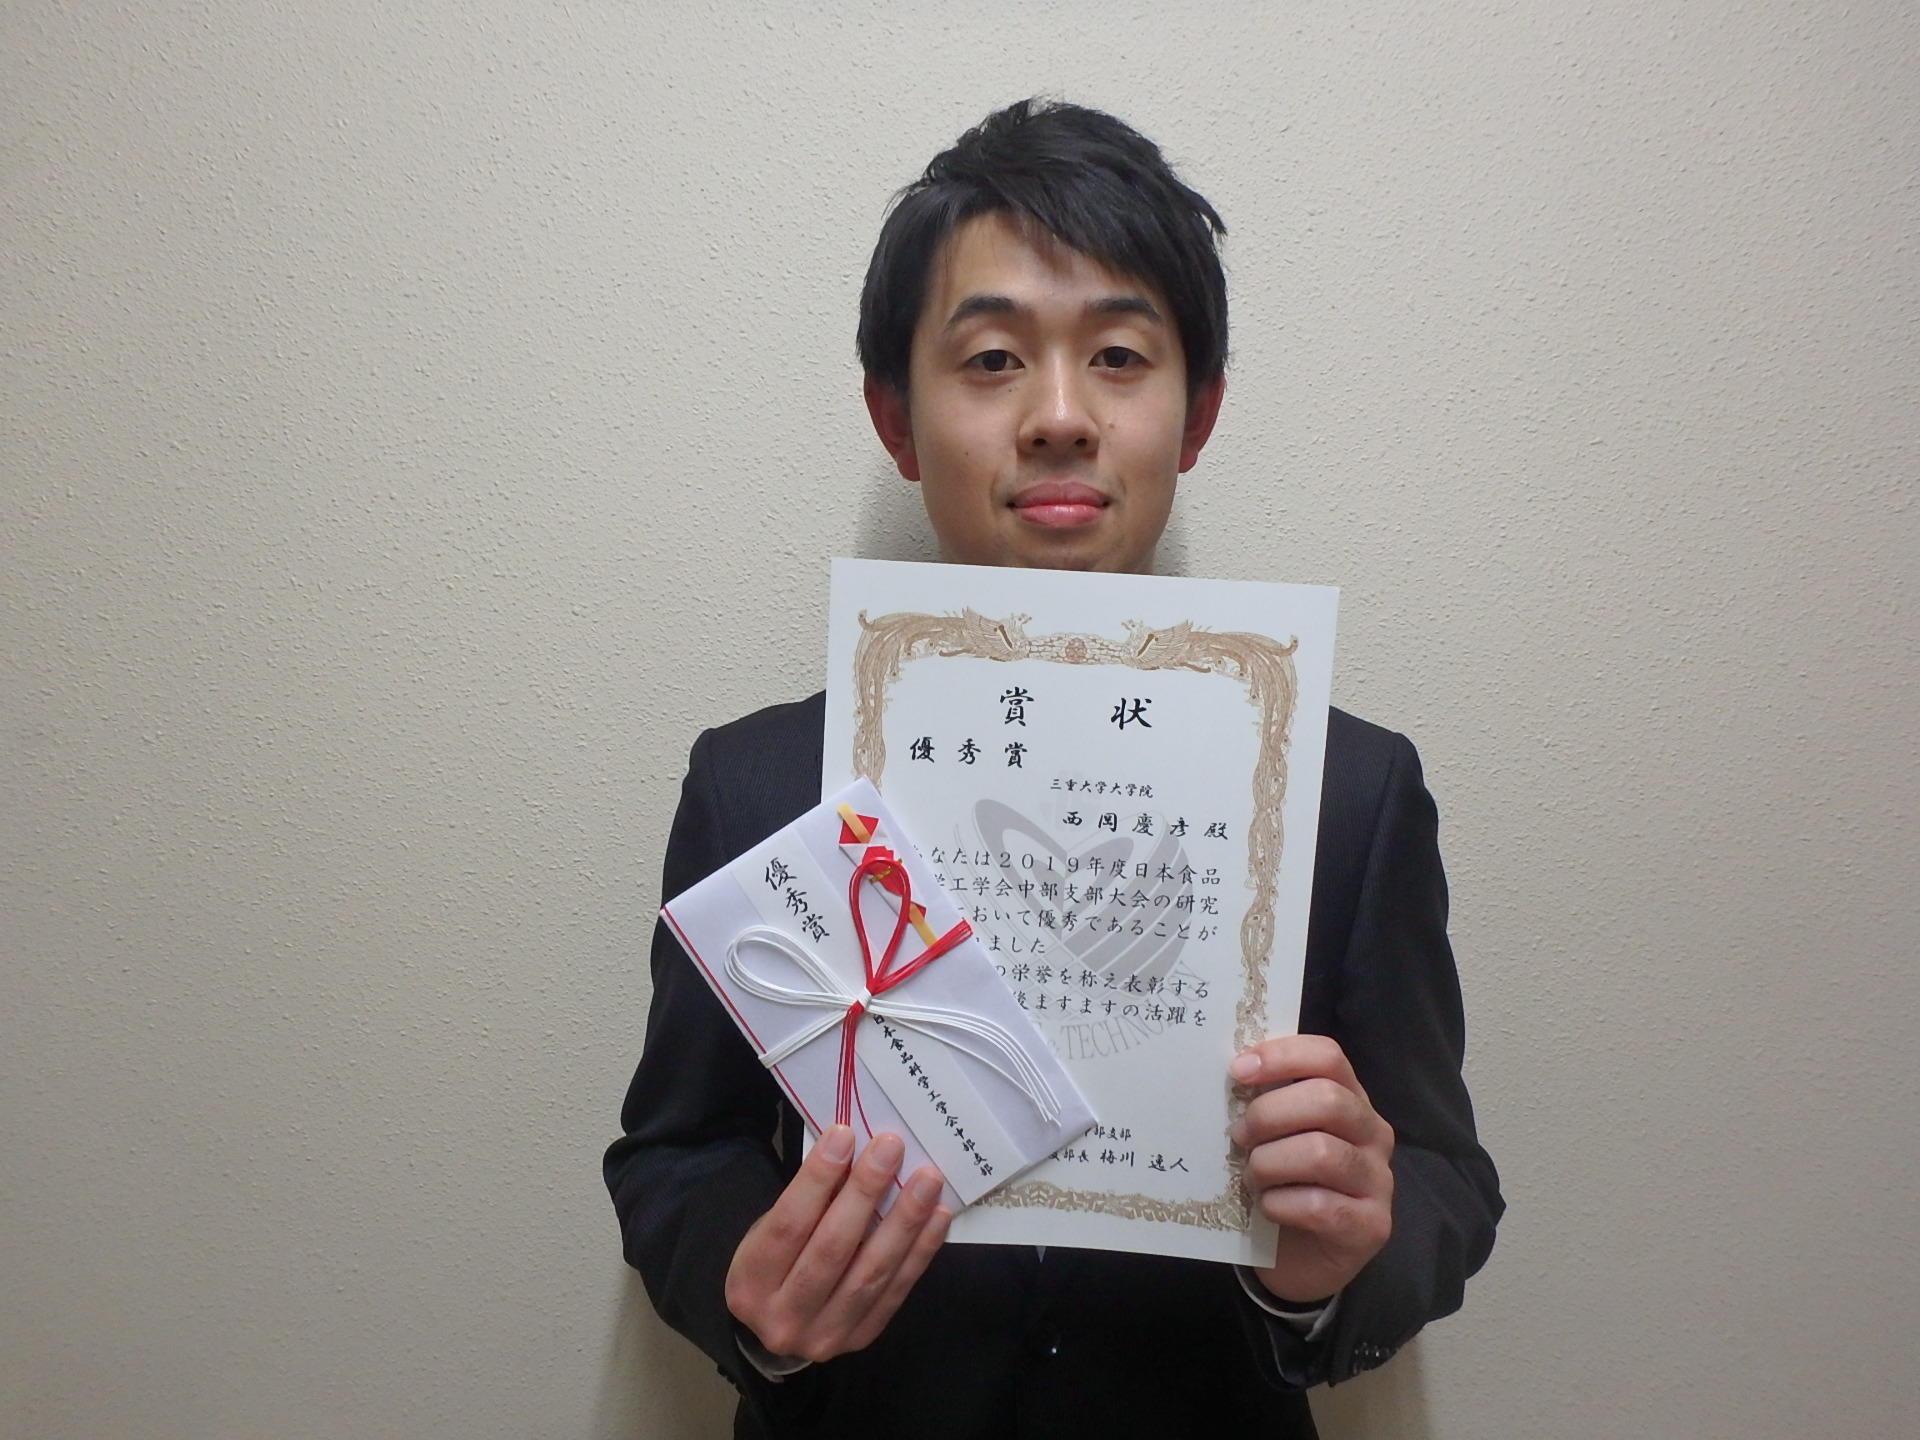 賞 状
優秀賞
三重大学大学院
西岡慶彦殿
なたは2019年度日本食品
学工学会中部支部大会の研究
おいて優秀であることが
ました
の栄誉を称え表彰する
後ますますの活躍を
& TECHNOLOGY
中部支部
支部長 梅川 逸人
優秀賞
日本食品科学工学会中部支部